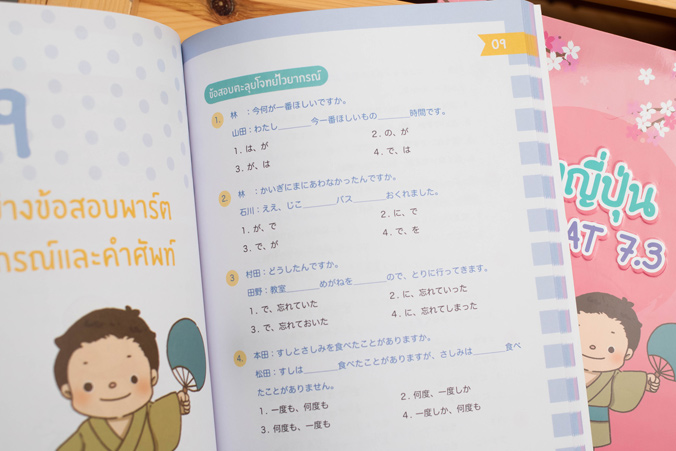 9
างข้อสอบพาร์ต
ารณ์และคำศัพท์
09
ข้อสอบตะลุยโจทย์ไวยากรณ์
1. 林 ：今何が一番ほしいですか。
山田：わたし______今一番ほしいもの______時間です。
1. は、が 2. の、が
3. が、は 4. で、は
2. 林 ：かいぎにまにあわなかったんですか。
石川：ええ、じこ______バス______おくれました。
1. が、で 2. に、で
3. で、が 4. で、を
3 村田：どうしたんですか。
田野：教室______めがねを______ので、とりに行ってきます。
1. で、忘れていた 2. に、忘れていった
3. で、忘れておいた 4. に、忘れてしまった
4. 本田：すしとさしみを食べたことがありますか。
松田：すしは______食べたことがありますが、さしみは______食べ
たことがありません。
1. 一度も、何度も 2. 何度、一度しか
3. 何度も、一度も 4. 一度しか、何度も
ญี่ปุ่น
AT 7.3